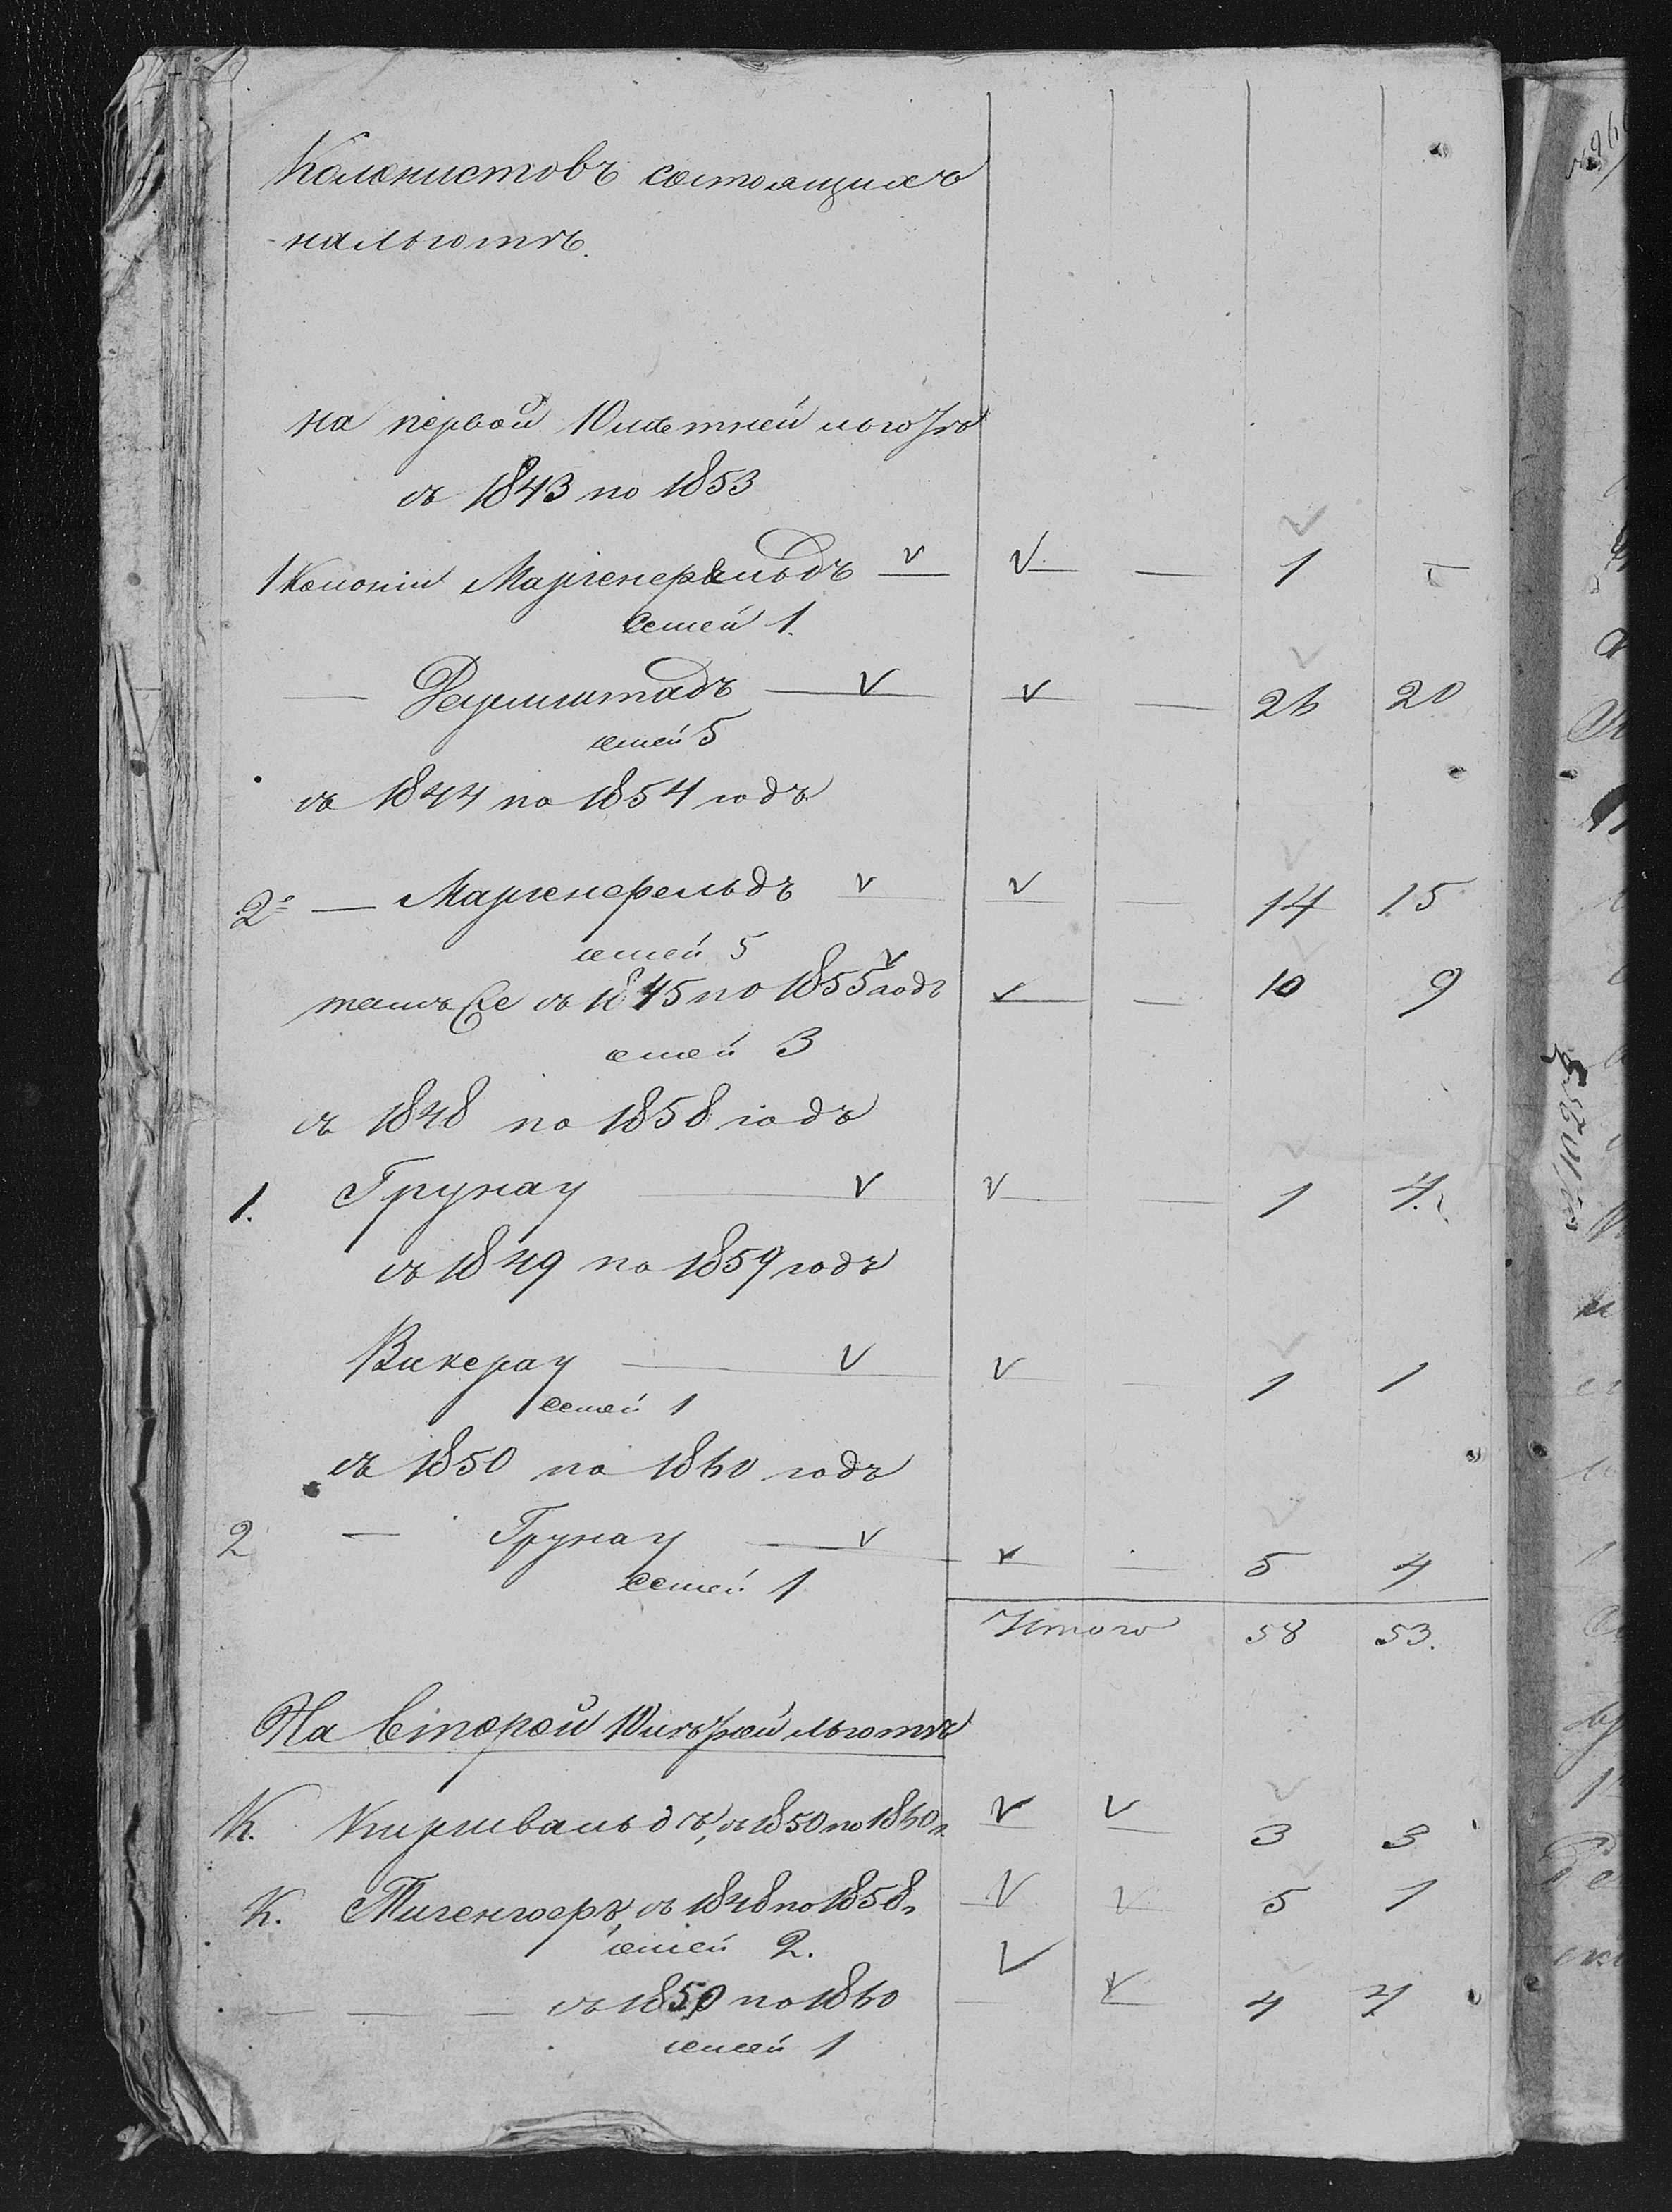 Колонистовъ состоящихъ
на льготѣ.
на первой 10 лѣтней льготѣ
съ 1843 по 1853
1 Колоніи Маріенфельдъ v — v — — 1 —
Семей 1.
— Дармштадъ — v v — 26 20
семей 5
съ 1844 по 1854 годъ
2е — Маріенфельдъ v v — 14 15
семей 5
тамъ же съ 1845 по 1855 годъ v v — 10 9
семей 3
съ 1848 по 1858 годъ
1. Грунау — v v — 1 4.
съ 1849 по 1859 годъ
Викерау — v v — 1 1
семей 1
съ 1850 по 1860 годъ
2 — Грунау — v v — 5 4
семей 1
Итого 58 53.
На второй 10 лѣтней льготѣ
К. Киршвальдъ, съ 1850 по 1860 г. v v 3 3
К. Тигенгофъ, съ 1848 по 1858 г. v v 5 1
семей 2.
— — — съ 1850 по 1860 v v 4 4
семей 1
№ 1025